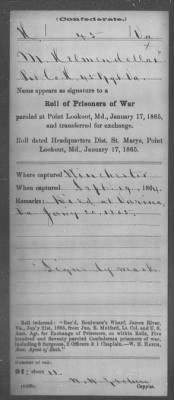 (Confederate.)
K. 45 Va
M. Kilmendollar
Pvt Co. K 45 Regt Va.
Name appears as signature to a
Roll of Prisoners of War
paroled at Point Lookout, Md., January 17, 1865,
and transferred for exchange.
Roll dated Headquarters Dist. St. Marys, Point
Lookout, Md., January 17, 1865.
Where captured Winchester
When captured Sept. 19, 1864.
Remarks:
Va Jany 20, 1865.
"Signs by mark
Roll indorsed: "Rec'd, Boulware's Wharf, James River,
Va., Jan'y 21, 1865, from Jno. E. Mulford, Lt. Col. and U. S.
Asst. Agt. for Exchange of Prisoners, on within Rolls, Five
hundred and Seventy paroled Confederate prisoners of war,
including 2 Surgeons, 2 Officers & 1 Chaplain.—W. H. Hatch,
Asst. Agent of Exch."
Number of roll:
sheet
Copyist.